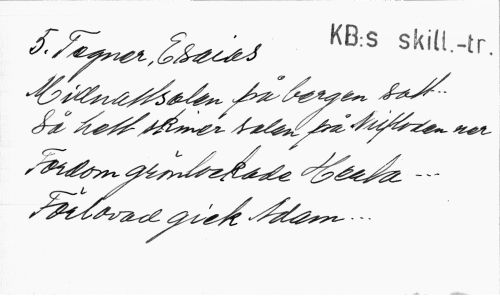 KB:s skill.-tr.
5. Tegner, Esaias
Midnattsolen på bergen satt..
Så hett skiner solen på Nilfloden ner
Fordom grönlockade Hertha ---
Förlovad gick Adam ---